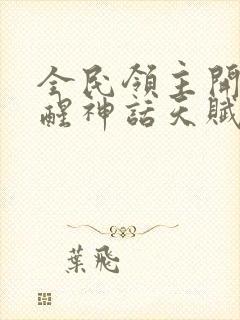 全民領主開
醒神話天賦
葉飛